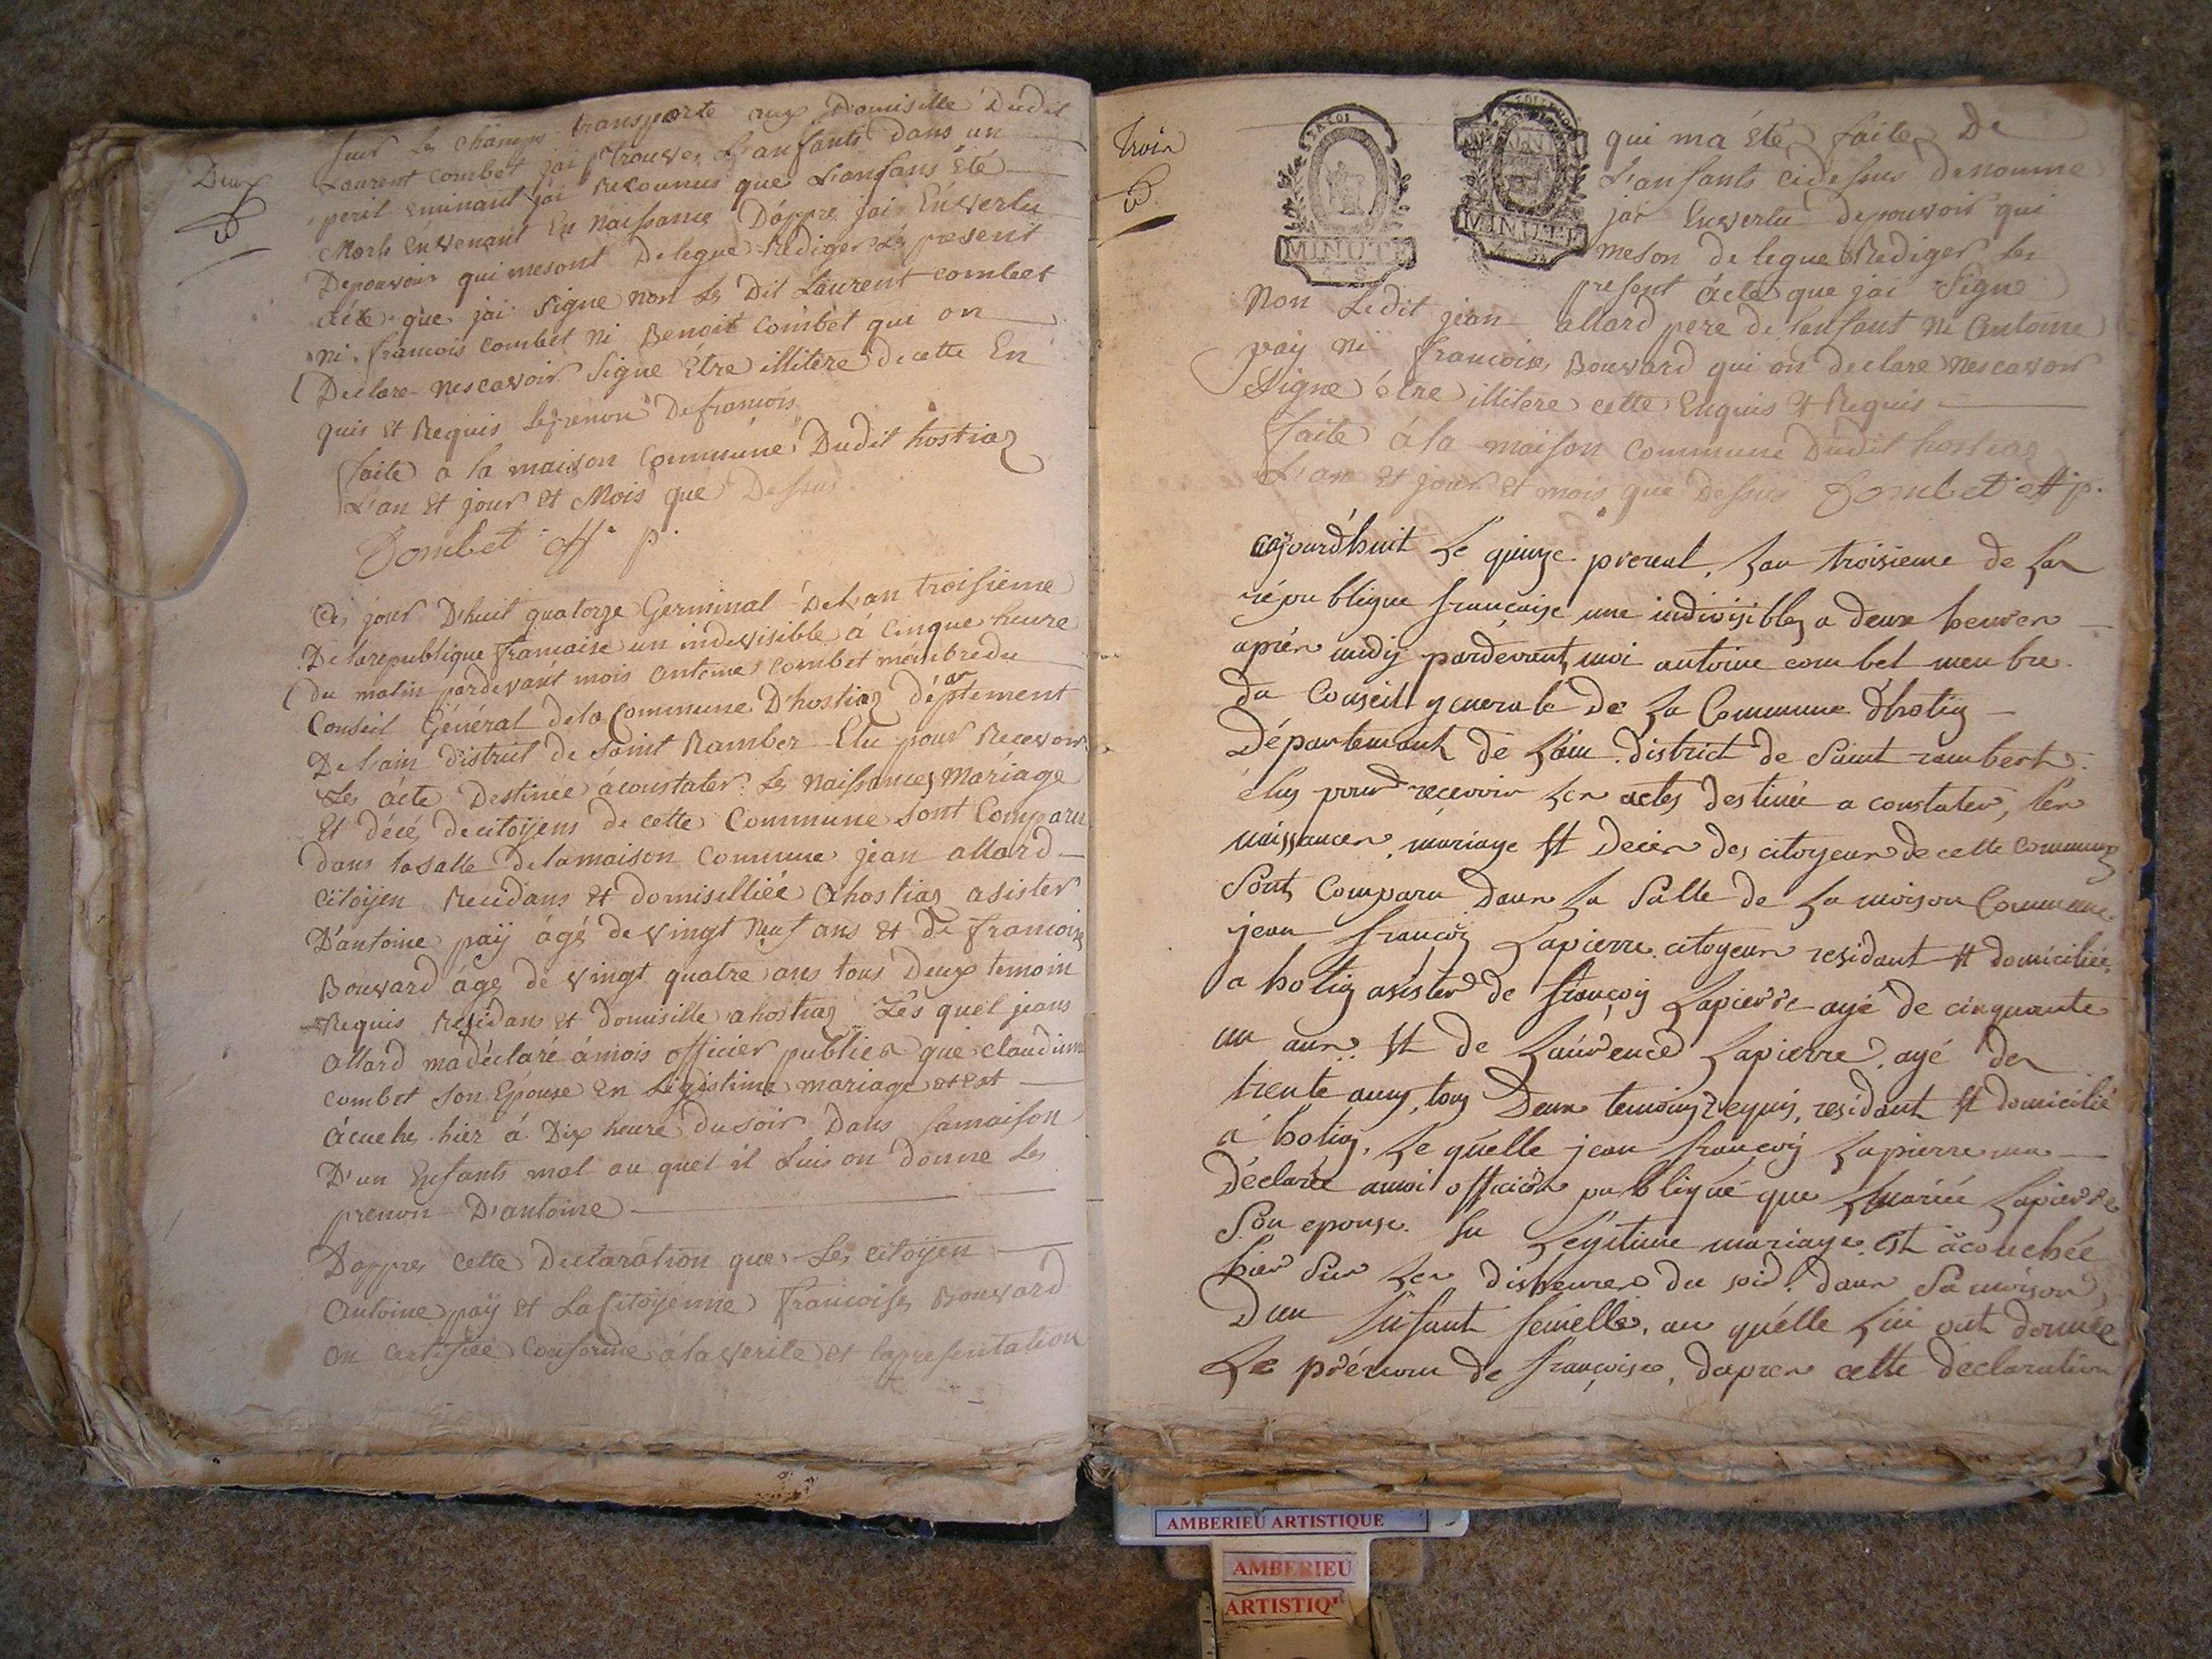 Deux
sur les champs transporte aux Domisille Dudit
Laurent Combet jai trouver L'anfants dans un
peril eminant jai Reconnus que L'anfans été
Morts Envenant En Naissance D'appre jai Envertu
Depouvoir qui mesont Delegue Rediger Le present
acte que jai Signe non Le Dit Laurent combet
ni francois combet ni Benoit Combet qui on
Declare Nescavoir Signe Etre illitere de cette En
quis Et Requis Le prenon De francois
faite a la maison Commune Dudit hostiaz
L'an Et jour et Mois que Dessus
Combet off. p.
Ce jour D'huit quatorze Germinal De L'an troisieme
De la republique francaise un indevisible à Cinque heure
Du matin pardevant mois Antoine Combet membre du
Conseil Général de la Commune D'hostiaz Département
De L'ain District de Saint Ramber Elu pour Recevoir
Les acte Destinée a constater Les Naissances Mariage
Et décé de citoÿens de cette Commune Sont Comparu
dans la salle de la maison Commune jean allard
citoÿen Residans et domisilliée a hostiaz asister
D'antoine paÿ âgé de vingt Neuf ans et de francoise
Bouvard âgé de vingt quatre ans tous Deux temoin
Requis Residans et domisille a hostiaz Lés quel jeans
allard ma déclaré à mois officier publics que claudine
combet son Epouse En Legistime mariage et Est
àcuche hier à Dix heure du soir Dans sa maison
D'un Enfants mal au quel il Luis on donne Le
prenon D'antoine
Dappres cette Declaration que Les citoÿen
Antoine paÿ et La Citoÿenne francoise Bouvard
on certifiée Conforme à la verite et la presentation
Trois
MINUTE
MINUTE
qui ma été faite De
L'anfants cidessus Denomme
jai Envertu depouvoir qui
meson delegue Rediger le
present acte que jai Signe
Non Ledit jean allard pere de lenfant Ni Antoine
paÿ Ni francoise Bouvard qui on declare Nescavoir
Signe être illitere cette Enquis et Requis
faite à la maison Commune Dudit hostiaz
L'an Et jour et mois que Dessus Combet off p.
aujourdhuit Le quinze prereal, Lan troisieme de La
république française une indivisible a deux heures
après midy pardevant moi antoine combet membre
du Conseil generale De La Commune d'hotiaz
Département de L'ain district de Saint rambert
élus pour recevoir Les actes destinée a constater, les
naissances, mariage et Deces des citoyens de cette commune
Sont Comparu dans La Salle de La moison Commune
jean françois Lapierre citoyens residant et domiciliée
a hotiaz asister de françois Lapierre agé de cinquante
un ans et de Laurence Lapierre, agé de
trente ans, tous Deux temoins requis, residant et domicilié
à hotiaz, Le quelle jean françois Lapierre ma
Déclarée a moi officier publique que Marie Lapierre
Son epouse En Legitime mariage est àcouchée
hier Sur Les dix heures du soir dans Sa moison,
D'un Enfant femelle, au quélle Lui ont donnée
Le prénom de françoise, dapres cette déclaration
AMBERIEU ARTISTIQUE
AMBERIEU
ARTISTIQ